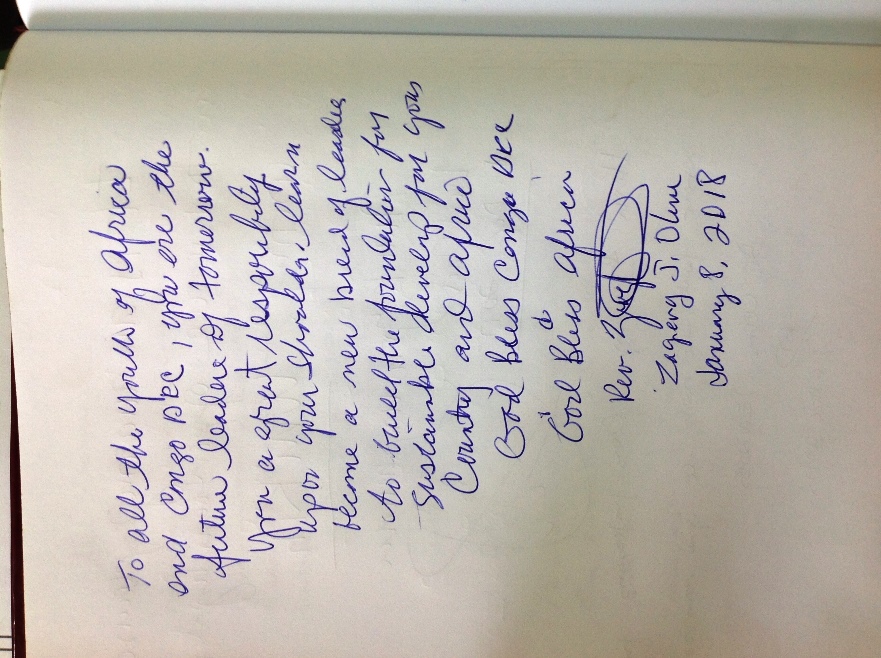 To all the youths of Africa
and Congo DRC, you are the
future leaders of tomorrow.
You a great responsibility
upon your shoulder, learn
become a new breed of leaders
to build the foundation for
sustainable develop for your
Country and Africa
God Bless Congo DRC
God Bless Africa
Rev.
J.
January 8, 2018